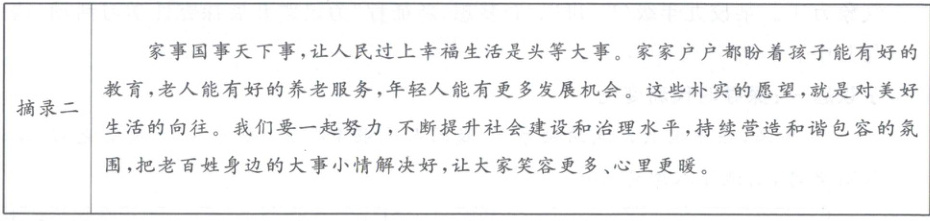 摘录二
家事国事天下事,让人民过上幸福生活是头等大事。家家户户都盼着孩子能有好的
教育,老人能有好的养老服务,年轻人能有更多发展机会。这些朴实的愿望,就是对美好
生活的向往。我们要一起努力,不断提升社会建设和治理水平,持续营造和谐包容的氛
围,把老百姓身边的大事小情解决好,让大家笑容更多、心里更暖。